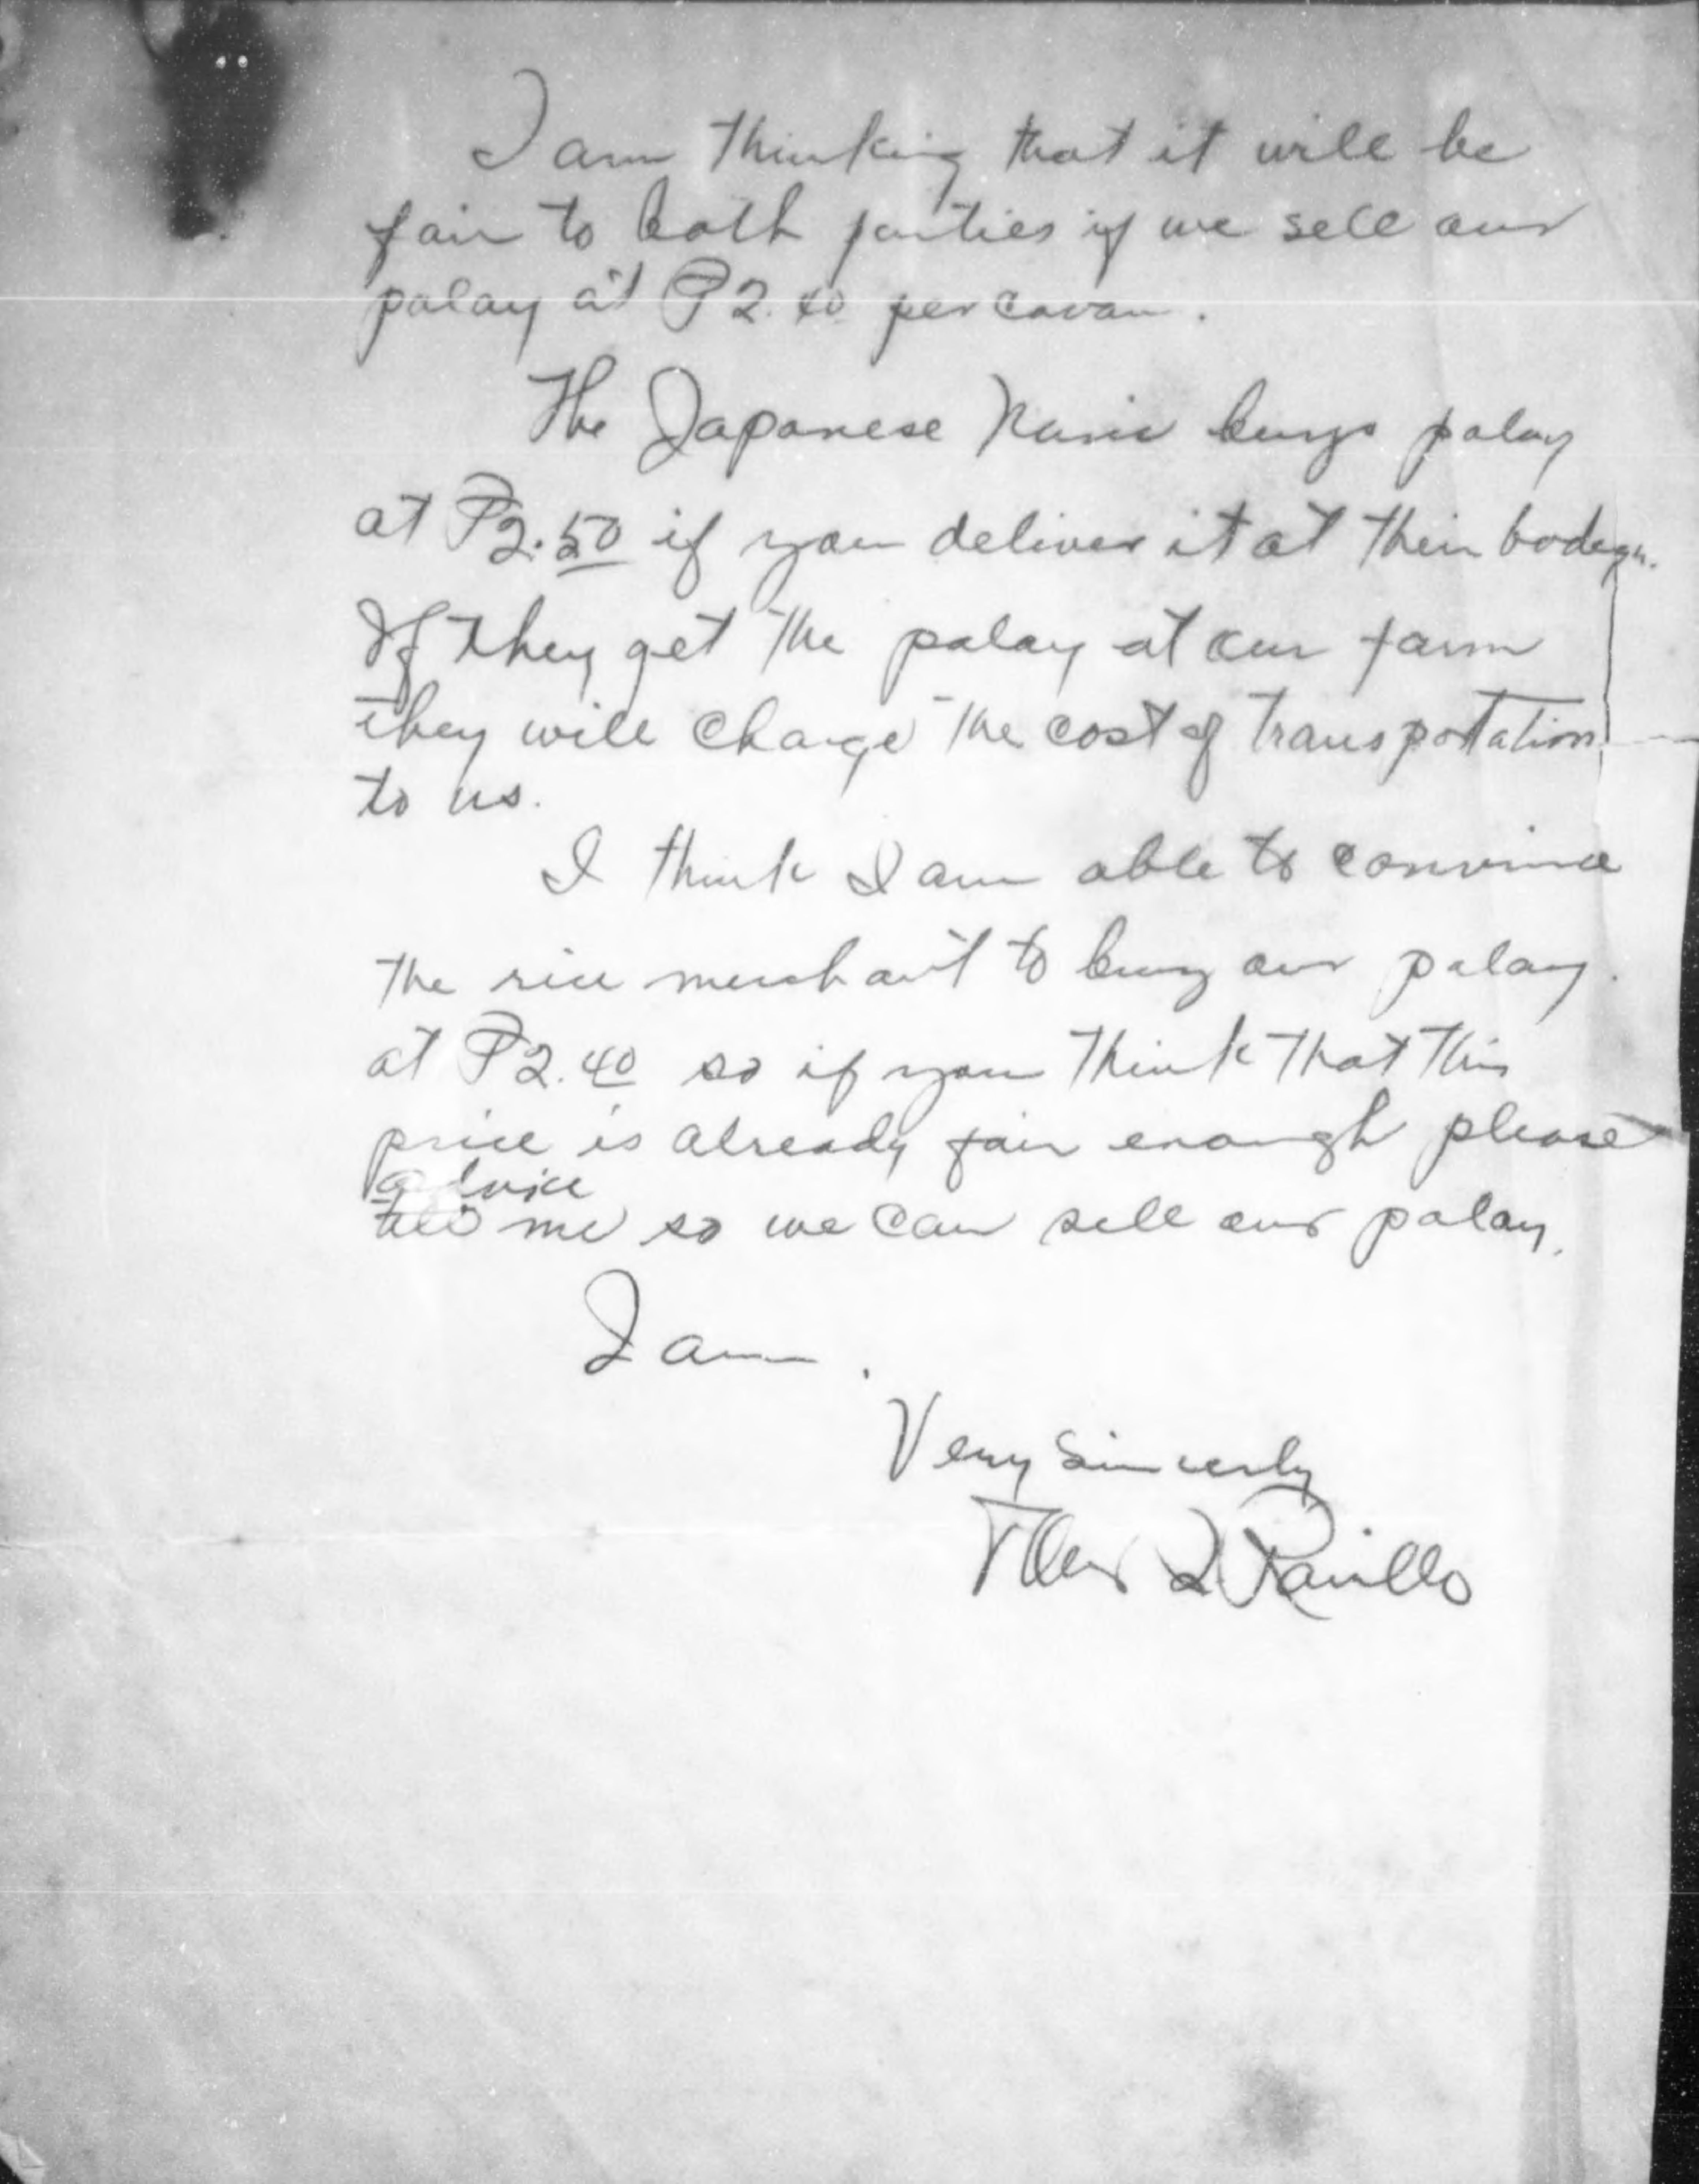 I am thinking that it will be
fair to both parties if we sell our
palay at ₱2.40 per cavan.
The Japanese buys palay
at ₱2.50 if you deliver it at their bodega.
If they get the palay at our farm
they will charge the cost of transportation
to us.
I think I am able to convince
the rice merchant to buy our palay
at ₱2.40 so if you think that this
price is already fair enough please
advice
tell me so we can sell our palay.
I am.
Very Sincerly